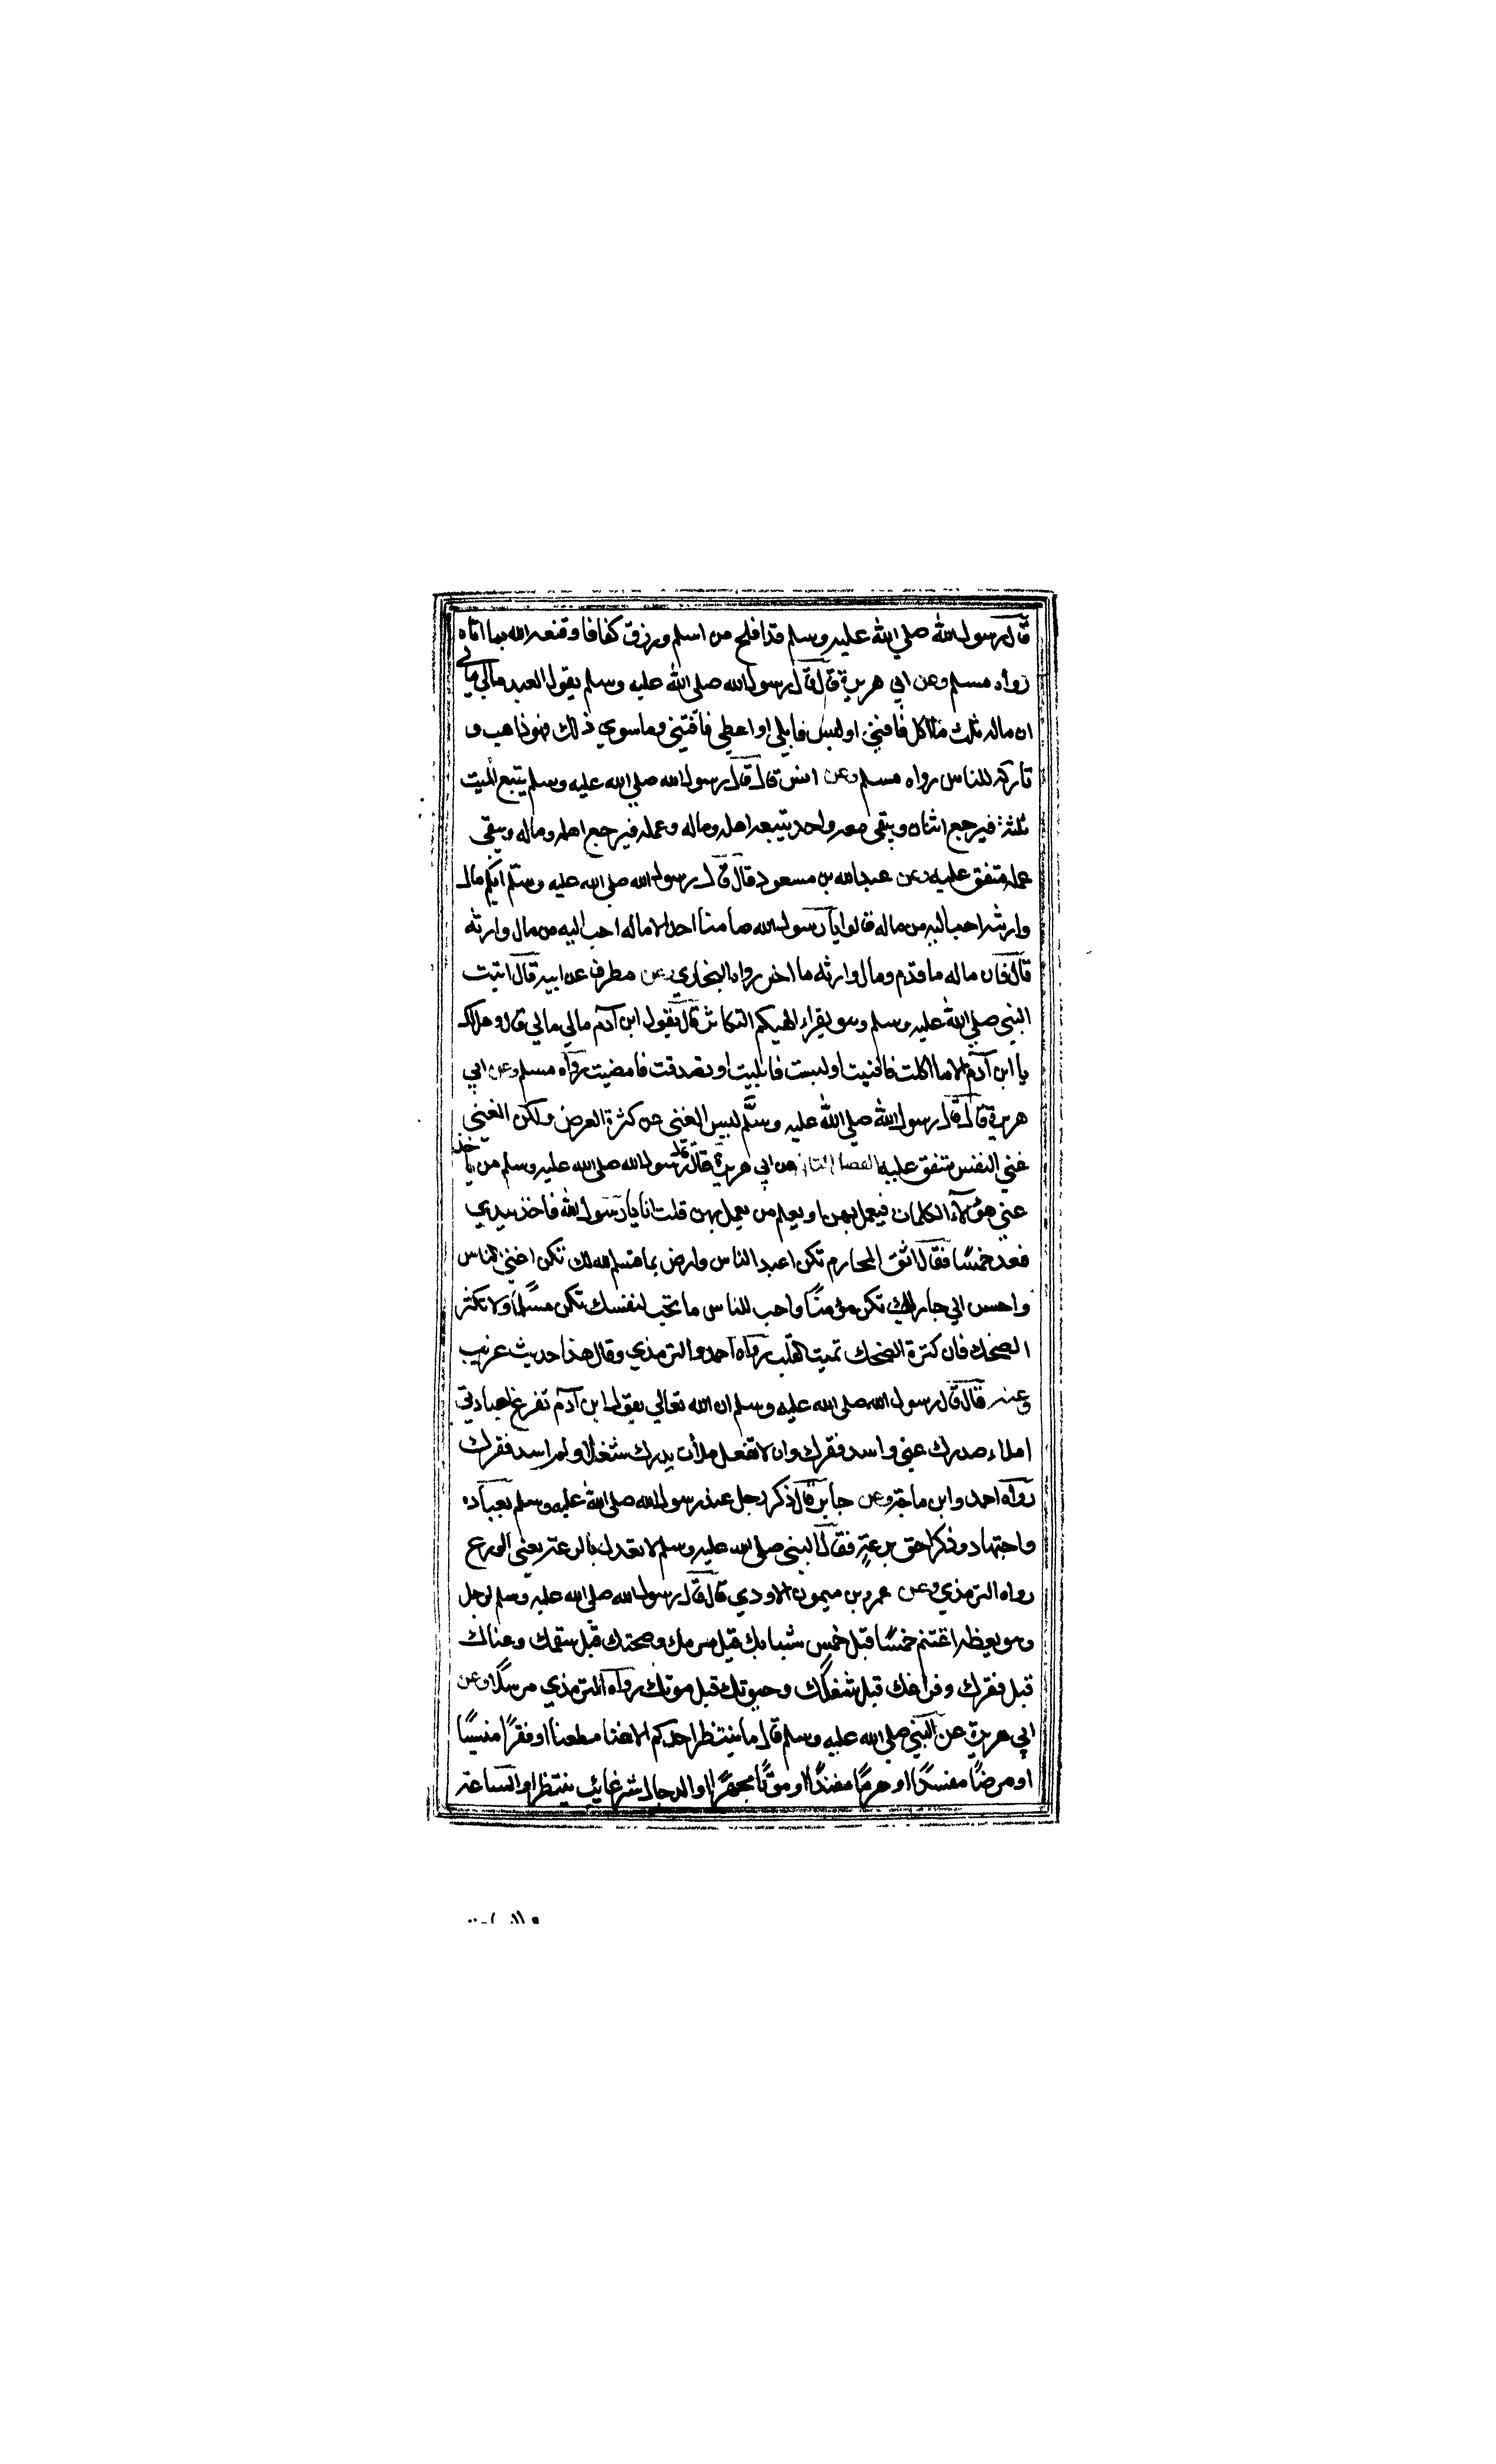 قال رسول الله صلي الله عليه وسلم قد افلح من اسلم ورزق كفافا وقنعه الله بما اتاه
رواه مسلم وعن ابي هريرة قال قال رسول الله صلي الله عليه وسلم يقول العبد مالي مالي
ان ماله ثلث ما اكل فافني او لبس فابلي او اعطي فاقتني وما سوي ذلك فهو ذاهب و
تاركه للناس رواه مسلم وعن انس قال قال رسول الله صلي الله عليه وسلم يتبع الميت
ثلثة فيرجع اثنان ويبقي معه واحد يتبعه اهله وماله وعمله فيرجع اهله وماله ويبقي
عمله متفق عليه وعن عبد الله بن مسعود قال قال رسول الله صلي الله عليه وسلم ايكم مال
وارثه احب اليه من ماله قالوا يا رسول الله ما منا احد الا ماله احب اليه من مال وارثه
قال فان ماله ما قدم ومال وارثه ما اخر رواه البخاري وعن مطرف عن ابيه قال اتيت
النبي صلي الله عليه وسلم وهو يقراء الهيكم التكاثر قال يقول ابن آدم مالي مالي قال وهل لك
يا ابن آدم الا ما اكلت فافنيت او لبست فابليت او تصدقت فامضيت رواه مسلم وعن ابي
هريرة قال قال رسول الله صلي الله عليه وسلم ليس الغني عن كثرة العرض ولكن الغني
غني النفس متفق عليه الفصل الثاني عن ابي هريرة قال قال رسول الله صلي الله عليه وسلم من ياخذ
عني هؤلآء الكلمات فيعمل بهن او يعلم من يعمل بهن قلت انا يا رسول الله فاخذ بيدي
فعد خمسًا فقال اتق المحارم تكن اعبد الناس وارض بما قسم الله لك تكن اغني الناس
واحسن الي جارك تكن مؤمنًا واحب للناس ما تحب لنفسك تكن مسلمًا ولا تكثر
الضحك فان كثرة الضحك تميت القلب رواه احمد والترمذي وقال هذا حديث غريب
وعنه قال قال رسول الله صلي الله عليه وسلم ان الله تعالي يقول ابن آدم تفرغ لعبادتي
املاء صدرك غني واسد فقرك وان لا تفعل ملأت يدك شغلا ولم اسد فقرك
رواه احمد وابن ماجة وعن جابر قال ذكر رجل عند رسول الله صلي الله عليه وسلم بعبادة
واجتهاد وذكر اخر برعة فقال النبي صلي الله عليه وسلم لا تعدل بالرعة يعني الورع
رواه الترمذي وعن عمرو بن ميمون الاودي قال قال رسول الله صلي الله عليه وسلم لرجل
وهو يعظه اغتنم خمسًا قبل خمس شبابك قبل هرمك وصحتك قبل سقمك وغناك
قبل فقرك وفراغك قبل شغلك وحيوتك قبل موتك رواه الترمذي مرسلًا وعن
ابي هريرة عن النبي صلي الله عليه وسلم قال ما ينتظر احدكم الا غنا مطغيا او فقرًا منسيًا
او مرضًا مفسدًا او هرمًا مفندًا او موتًا مجهزًا او الدجال شر غائب ينتظر او الساعة